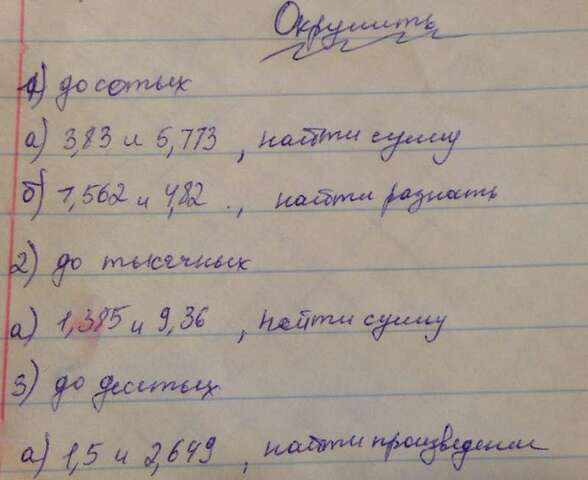 Округлить
1) до сотых
а) 3,83 и 5,773, найти сумму
б) 1,562 и 4,82, найти разность
2) до тысячных
а) 1,385 и 9,36, найти сумму
3) до десятых
а) 1,5 и 2,649, найти произведение